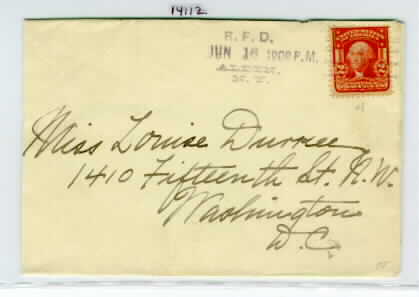 14112
R. F. D.
JUN 16 1908 P.M.
N. Y.
2 2
Miss Louise Durkee
1410 Fifteenth St. N.W.
Washington
D.C.